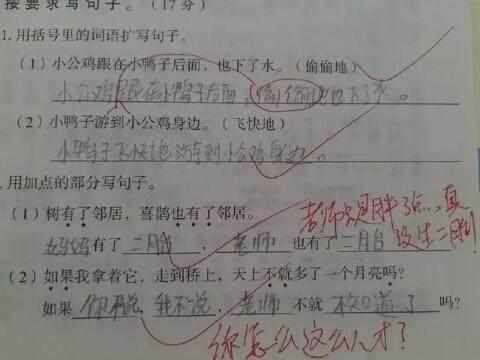 按要求写句子。(17分)
1.用括号里的词语扩写句子。
(1)小公鸡跟在小鸭子后面,也下了水。(偷偷地)
小公鸡跟在小鸭子后面,偷偷地也下了水。
(2)小鸭子游到小公鸡身边。(飞快地)
小鸭子飞快地游到小公鸡身边。
.用加点的部分写句子。
(1)树有了邻居,喜鹊也有了邻居。
老师只是胖了点,真没生二胎!
妈妈有了二月台,老师也有了二月台
(2)如果我拿着它,走到桥上,天上不就多了一个月亮吗?
如果你不说,我不说,老师不就不知道了吗?
你怎么这么人才?